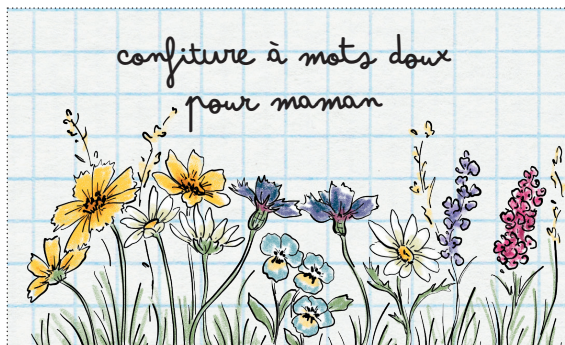 confiture à mots doux
pour maman